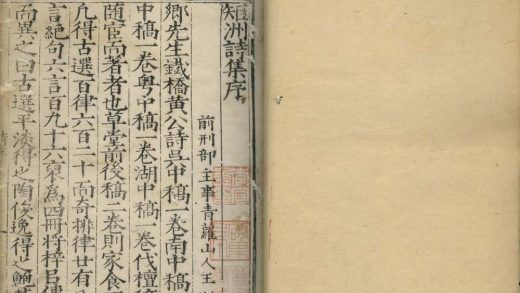 矩洲詩集序
前刑部主事青蘿山人王
鄉先生鐵橋黃公詩吳中稿一卷南中稿
中稿一卷粵中稿一卷湖中稿一卷代檀
隨宦而著者也草堂前後稿二卷則家食
凡得古選百律六百二十面奇排律廿有
言絕句六言百九十六裒為四冊將梓呂傳
而異之曰古選平淡得之陶俊逸得之鮑